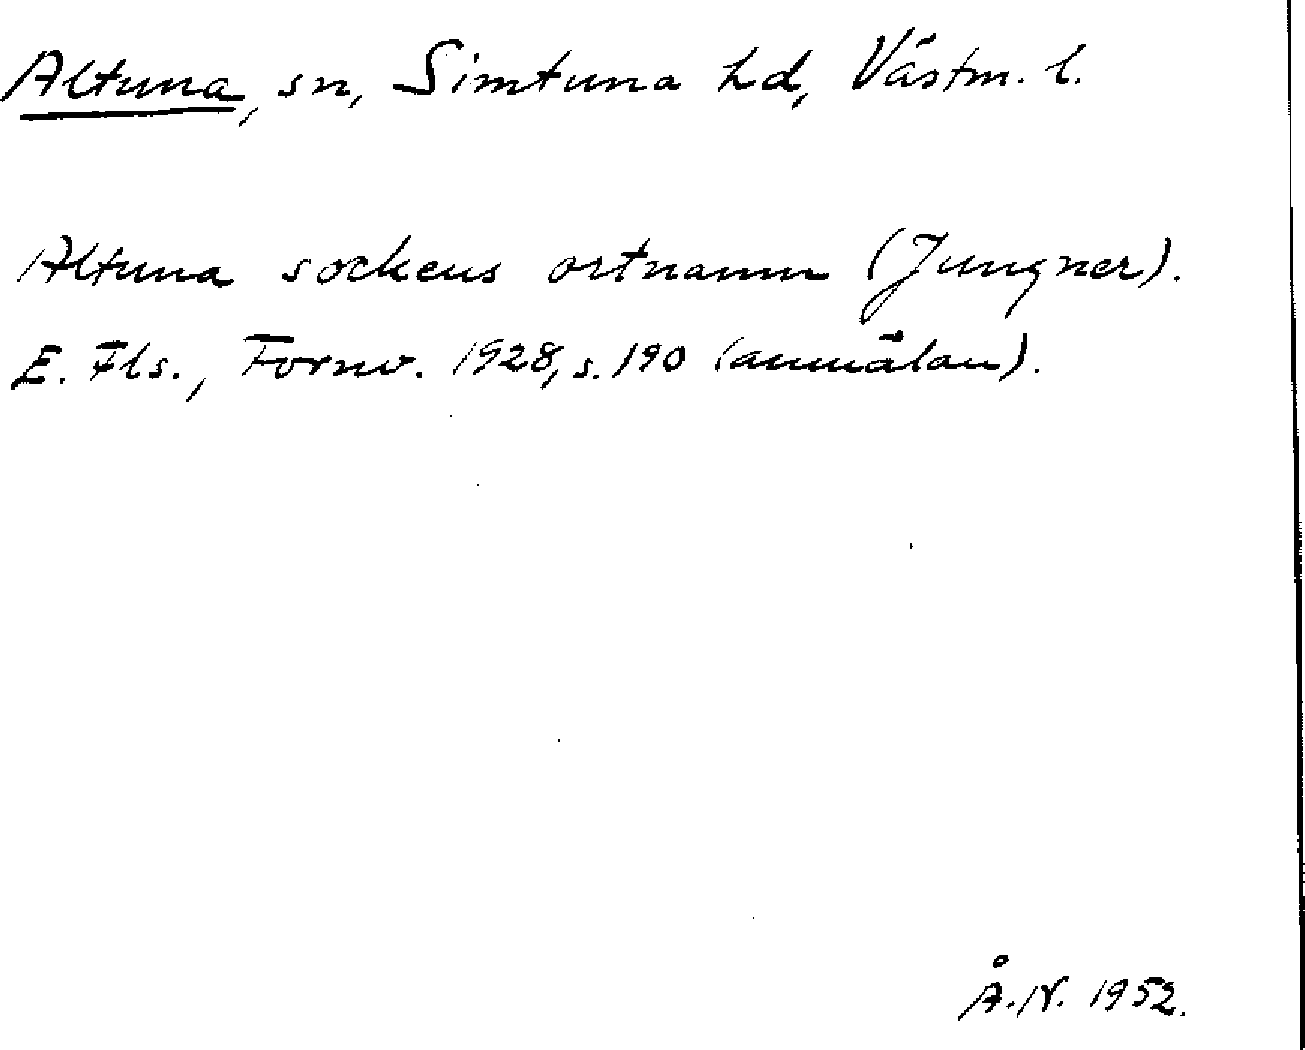 Altuna, sn, Simtuna hd, Västm. l.
Altuna sockens ortnamn (Jungner).
E. Fls., Fornv. 1928, s. 190 (anmälan).
Å. N. 1952.